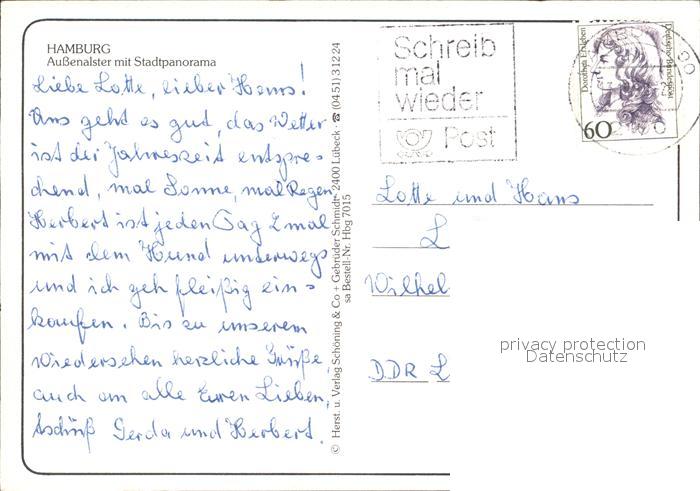 HAMBURG
Außenalster mit Stadtpanorama
Liebe Lotte, lieber Hans!
Uns geht es gut, das Wetter
ist der Jahreszeit entspre=
chend, mal Sonne, mal Regen
Herbert ist jeden Tag 2 mal
mit dem Hund unterwegs
und ich geh fleißig ein=
kaufen. Bis zu unserem
Wiedersehen herzliche Grüße,
auch an alle Euren Lieben,
tschüß Gerda und Herbert.
© Herst. u. Verlag Schöning & Co + Gebrüder Schmidt · 2400 Lübeck · ☎ (04 51) 3 12 24
sa Bestell-Nr. Hbg 7015
Schreib
mal
wieder
Post
Dorothea Erxleben
Deutsche Bundespost
60
Lotte und Hans
L
Wilhel
DDR L
privacy protection
Datenschutz